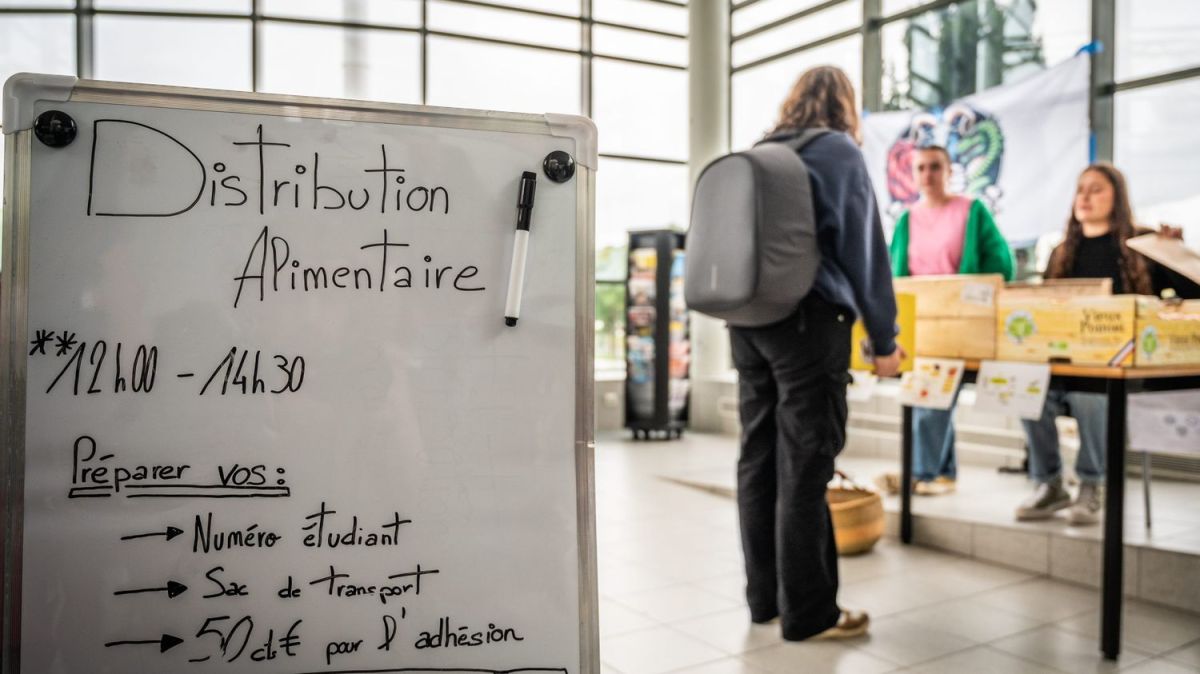 Distribution
Alimentaire
**12h00 - 14h30
Préparer vos :
→ Numéro étudiant
→ Sac de transport
→ 50 ct€ pour l'adhésion
Vieux